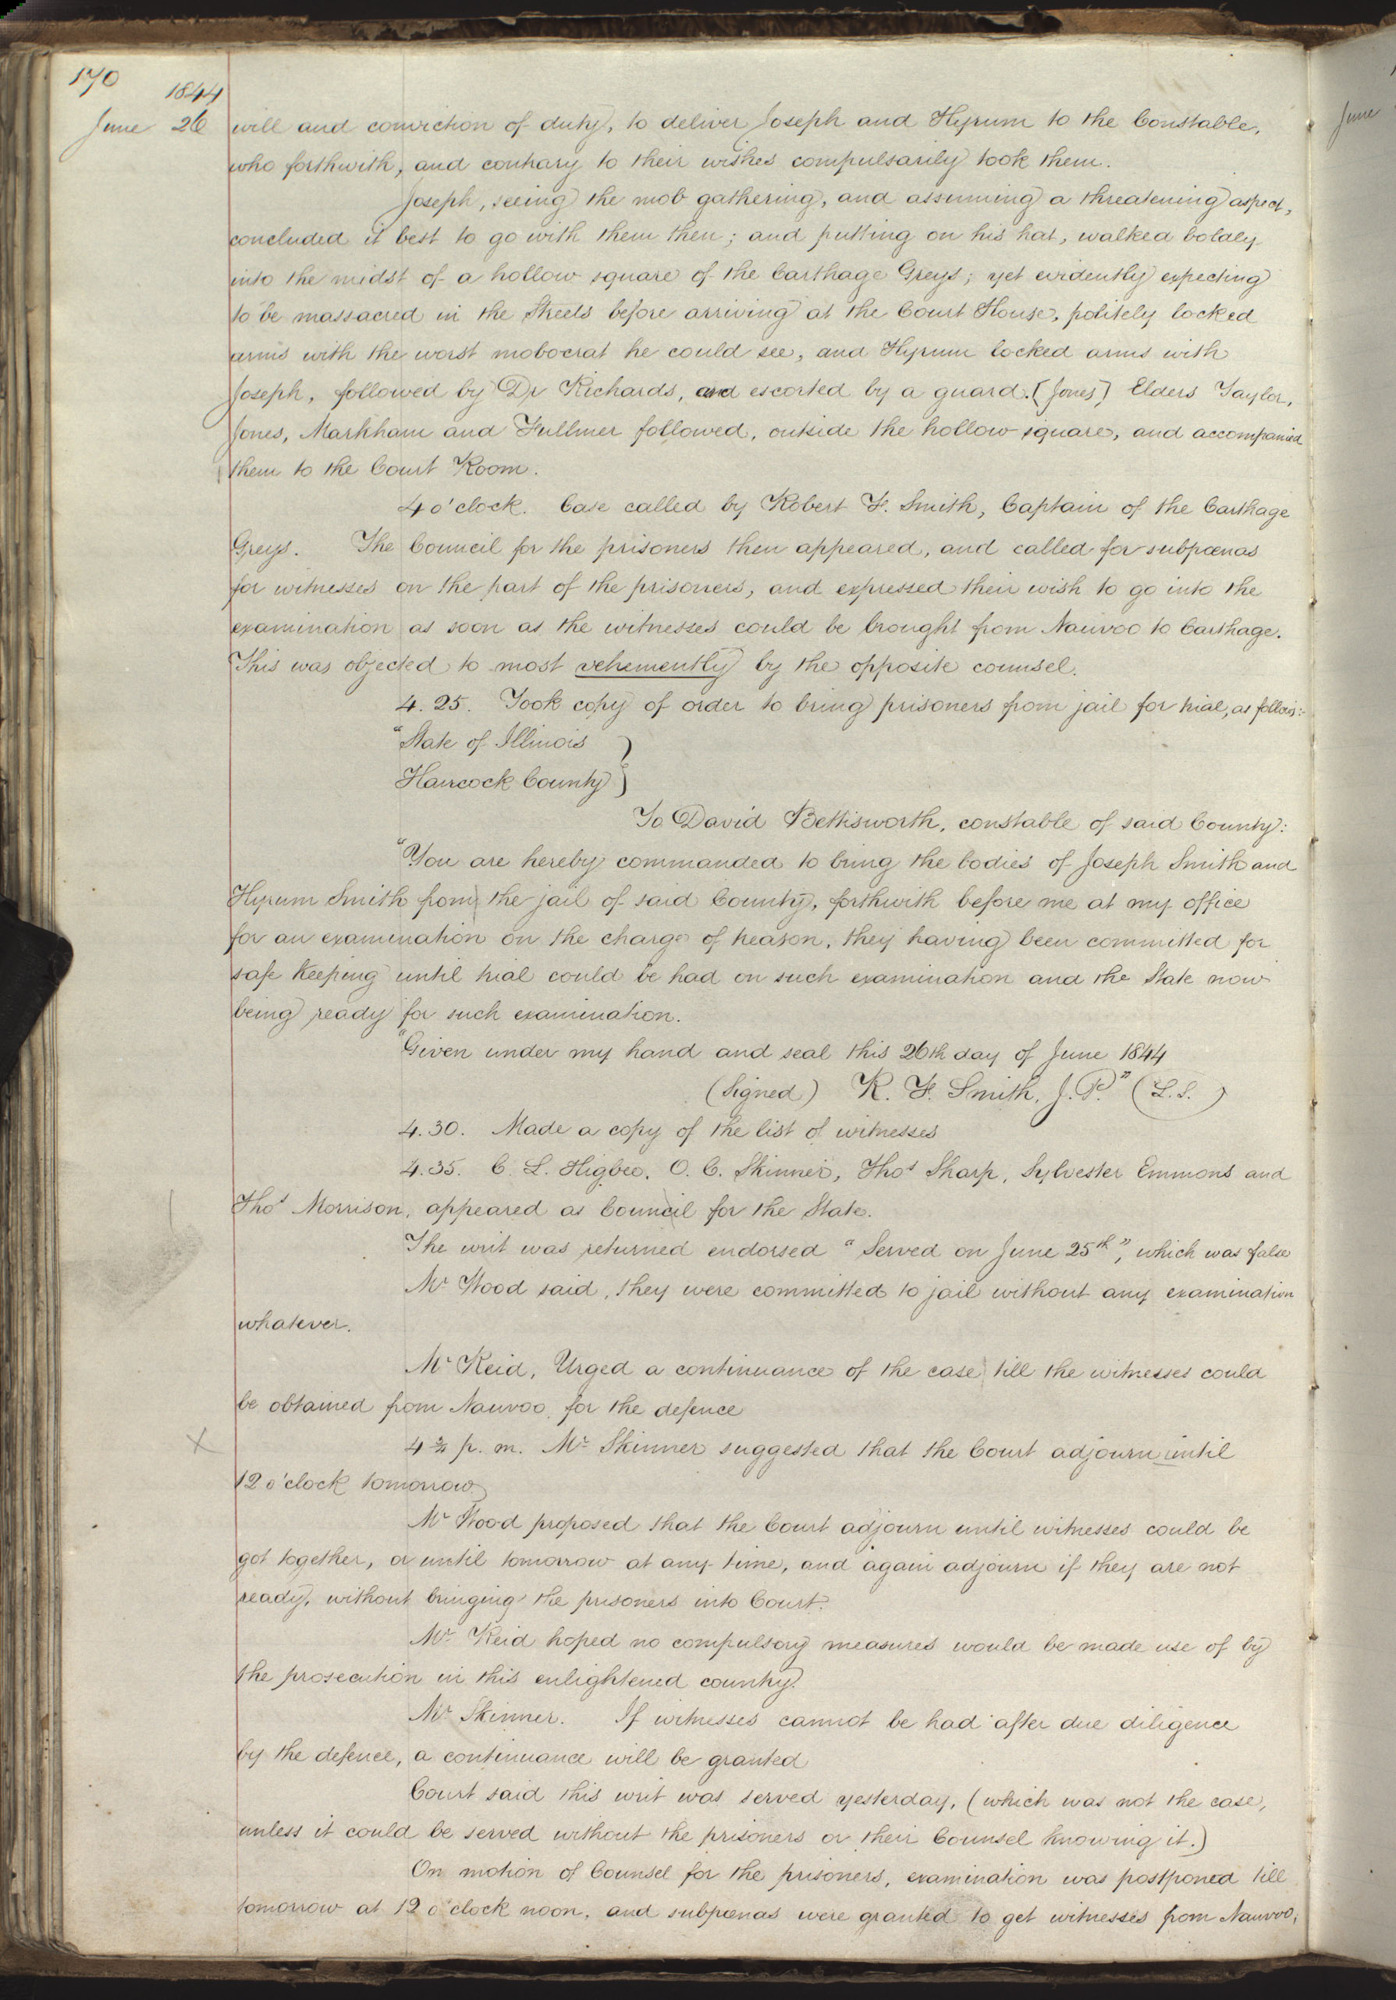 170
1844
June 26 will and conviction of duty, to deliver Joseph and Hyrum to the Constable,
who forthwith, and contrary to their wishes compulsarily took them.
Joseph, seeing the mob gathering, and assuming a threatening aspect,
concluded it best to go with them then; and putting on his hat, walked boldly
into the midst of a hollow square of the Carthage Greys; yet evidently expecting
to be massacred in the Streets before arriving at the Court House, politely locked
arms with the worst mobocrat he could see, and Hyrum locked arms with
Joseph, followed by Dr Richards, and escorted by a guard. [Jones] Elders Taylor,
Jones, Markham and Fullmer followed, outside the hollow square, and accompanied
them to the Court Room.
4 o'clock. Case called by Robert F. Smith, Captain of the Carthage
Greys. The Council for the prisoners then appeared, and called for subpœnas
for witnesses on the part of the prisoners, and expressed their wish to go into the
examination as soon as the witnesses could be brought from Nauvoo to Carthage.
This was objected to most vehemently by the opposite counsel.
4.25. Took copy of order to bring prisoners from jail for trial, as follows:-
"State of Illinois }
Hancock County }
To David Bettisworth, constable of said County:
"You are hereby commanded to bring the bodies of Joseph Smith and
Hyrum Smith from the jail of said County, forthwith before me at my office
for an examination on the charge of treason, they having been committed for
safe keeping until trial could be had on such examination and the State now
being ready for such examination.
"Given under my hand and seal this 26th day of June 1844
(Signed) R. F. Smith, J. P." (L.S.)
4.30. Made a copy of the list of witnesses
4.35. C. L. Higbee, O. C. Skinner, Thos Sharp, Sylvester Emmons and
Thos Morrison, appeared as Council for the State.
The writ was returned endorsed "Served on June 25th", which was false
Mr Wood said, they were committed to jail without any examination
whatever.
Mr Reid, Urged a continuance of the case till the witnesses could
be obtained from Nauvoo for the defence
4 3/4 p. m. Mr Skinner suggested that the Court adjourn until
12 o'clock tomorrow
Mr Wood proposed that the Court adjourn until witnesses could be
got together, or until tomorrow at any time, and again adjourn if they are not
ready, without bringing the prisoners into Court.
Mr Reid hoped no compulsory measures would be made use of by
the prosecution in this enlightened country.
Mr Skinner. If witnesses cannot be had after due diligence
by the defence, a continuance will be granted
Court said this writ was served yesterday, (which was not the case,
unless it could be served without the prisoners or their Counsel knowing it.)
On motion of Counsel for the prisoners, examination was postponed till
tomorrow at 12 o'clock noon, and subpœnas were granted to get witnesses from Nauvoo,
June